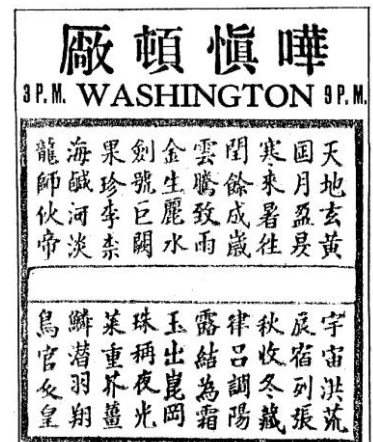 嘩愼頓廠
3 P.M. WASHINGTON 9 P.M.
天地玄黃
囯月盈昃
寒來暑徃
閏餘成歲
雲騰致雨
金生麗水
劍號巨闕
果珍李柰
海鹹河淡
龍師伙帝
宇宙洪荒
辰宿列張
秋收冬藏
律呂調陽
露結為霜
玉出崑岡
珠稱夜光
菜重芥薑
鱗潛羽翔
鳥官人皇